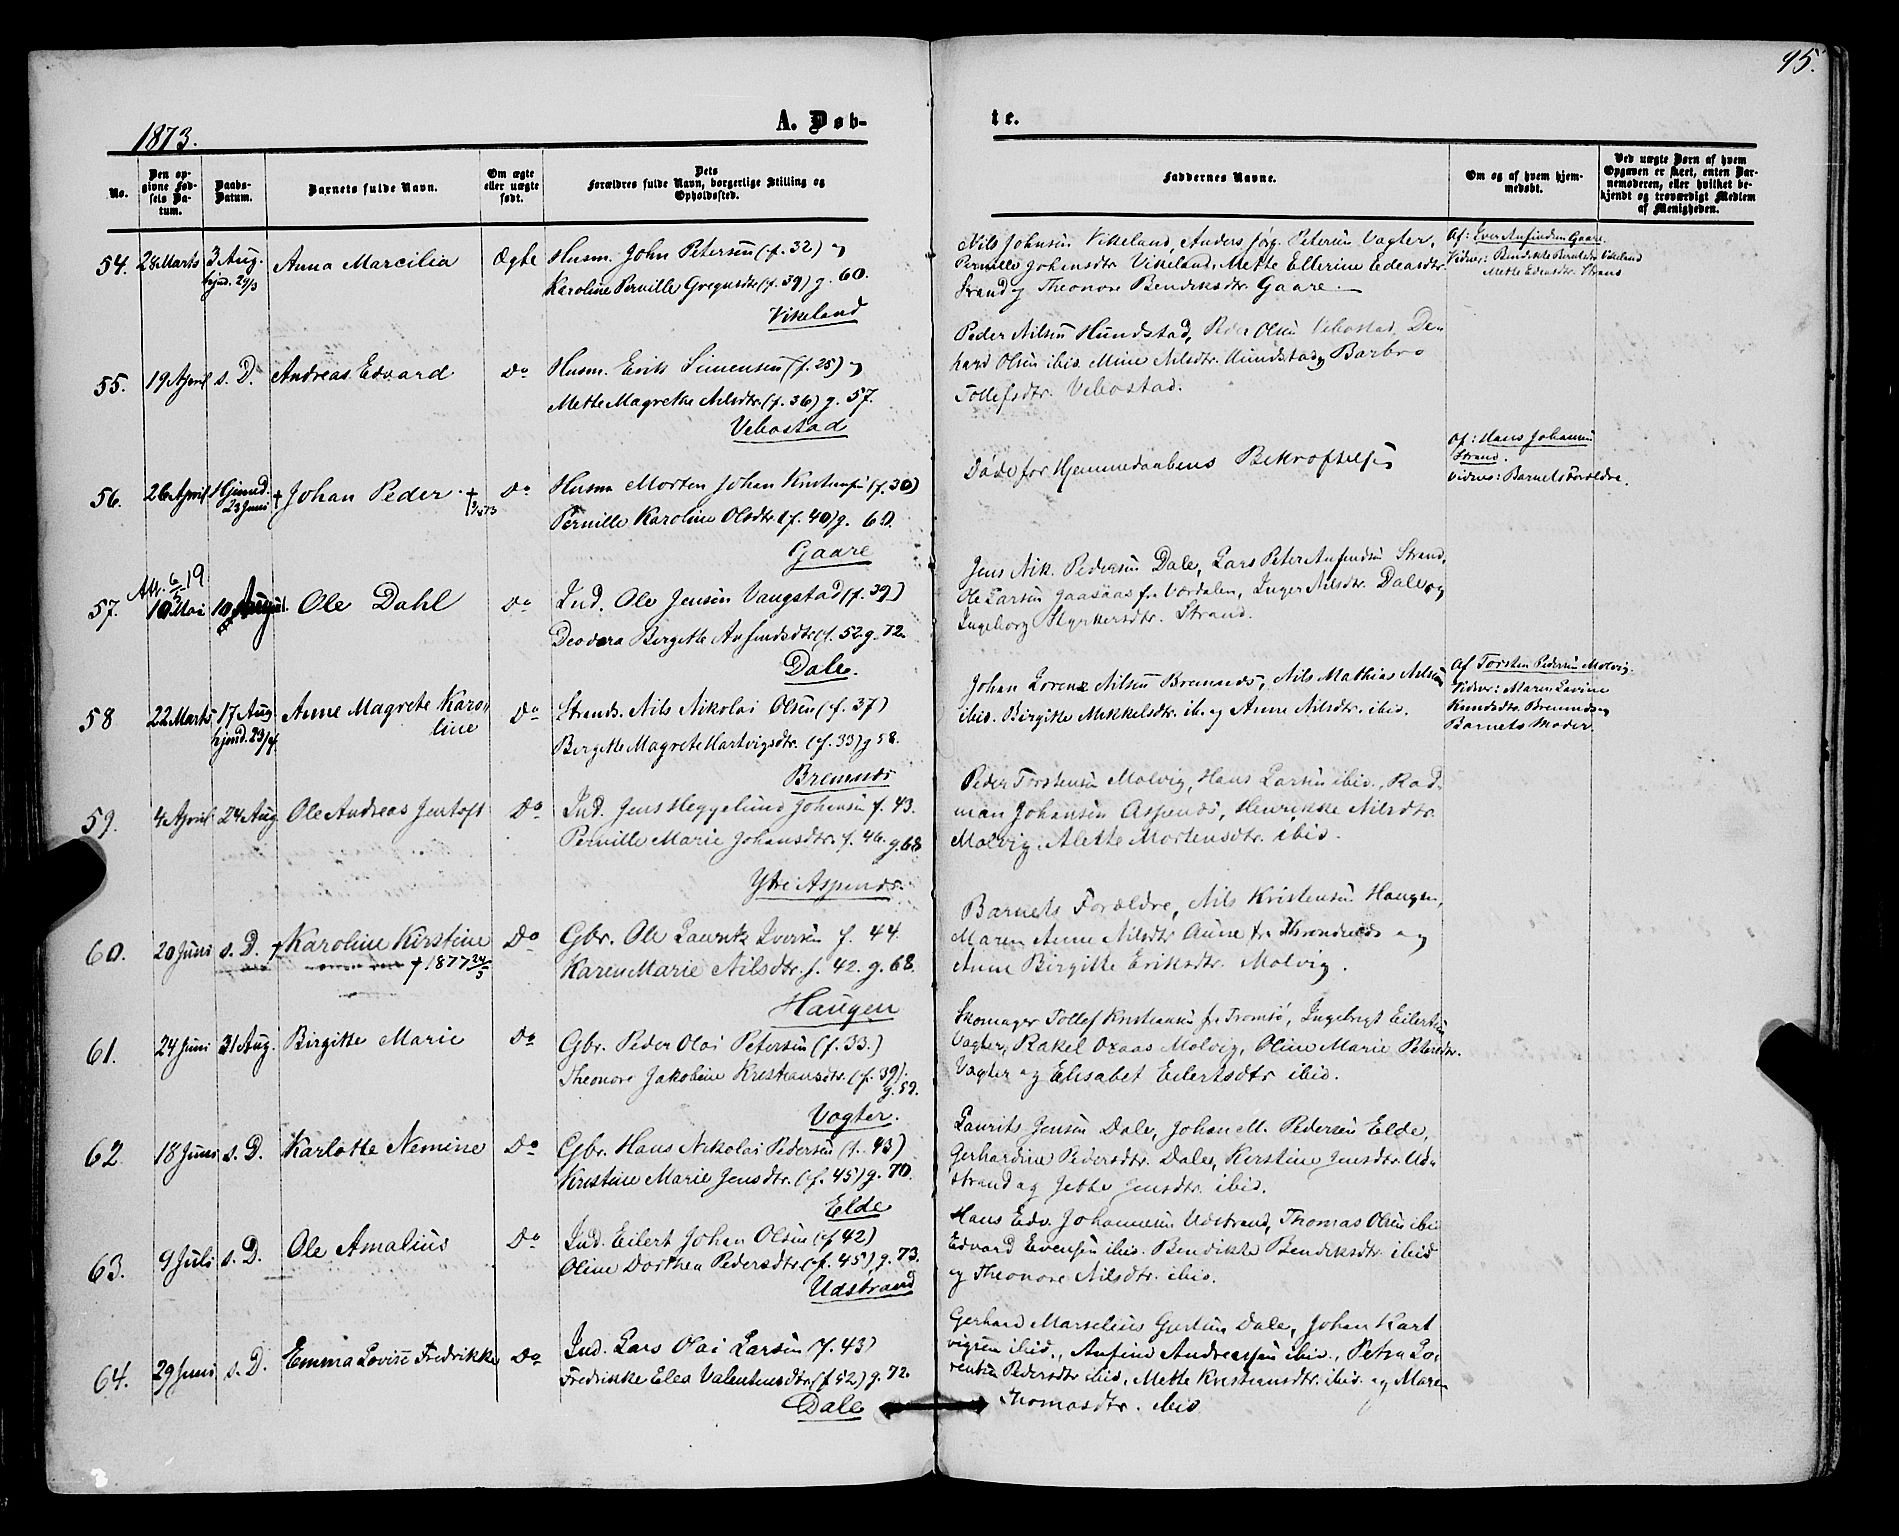 95.
1873.
A. Døb-
te.
No.
Den op-
givne Fød-
sels Da-
tum.
Daabs-
Datum.
Barnets fulde Navn.
Om ægte
eller uægte
født.
Dets
Forældres fulde Navn, borgerlige Stilling og
Opholdssted.
Faddernes Navne.
Om og af hvem hjem-
medøbt.
Ved uægte Børn af hvem
Opgaven er skeet, enten Bar-
nemoderen, eller hvilket be-
kjendt og troværdigt Medlem
af Menigheden.
54. 28 Marts 3 Aug. Anna Marcilia Ægte Husm. John Petersen (f. 32) og
hjmd. 29/3
Karoline Pernille Gregusdtr (f. 39) g. 60.
Vikeland
Nils Johnsen Vikeland, Anders Jørg. Petersen Vagter,
Pernille Johensdtr Vikeland, Mette Ellerine Edeasdtr.
Strand og Theonore Bendiksdtr. Gaare.
Af: Iver Anfindsen Gaare.
Vidner: Bendikte Vikeland
Mette Edeasdtr. Strand
55. 19 April s. D. Andreas Edvard Do Husm. Erik Simensen (f. 25) og
Mette Magrethe Nilsdtr. (f. 36) g. 57.
Vebostad
Peder Nilsen Hundstad, Peder Olsen Vebostad, De-
hard Olsen ibid. Mine Nilsdtr. Hundstad og Barbro
Tollefsdtr. Vebostad.
56. 26 April Hjemd. 23 Juni † Johan Peder † Do Husm Morten Johan Kristensen (f. 30)
Pernille Karoline Olsdtr. (f. 40) g. 60.
Gaare
Døde før Hjemmedaabens Bekræftelse
Af: Hans Johansen
Strand.
Vidner: Barnets Forældre.
Att. 6/5 19
57. 10 Mai 10 August. Ole Dahl Do Ind. Ole Jensen Vangstad (f. 39)
Deodora Birgitte Anfindsdtr (f. 52 g. 72.
Dale.
Jens Nik. Pedersen Dale, Lars Peter Anfindsen Strand,
Ole Larsen Gaasaas fr. Værdalen, Inger Nilsdtr. Dale og
Ingeborg Styrkersdtr. Strand.
58 22 Marts 17 Aug Anne Magrete Karo-
line
hjemd. 23/4
Do Strands. Nils Nikolai Olsen (f. 37)
Birgitte Magrete Hartvigsdtr. (f. 33) g 58.
Bremnes
Johan Lorenz Nilsen Bremnes, Nils Mathias Nilsen
ibid. Birgitte Mikkelsdtr. ib. og Anne Nilsdtr. ibid.
Af Torsten Pedersen Molvig.
Vidner: Maren Lavine
Knudsdtr. Bremnes og
Barnets Moder.
59. 4 April 24 Aug Ole Andreas Jentoft Do Ind. Jens Heggelund Johensen f. 43.
Pernille Marie Johansdtr. f. 46. g. 68
Ytre Aspenæs.
Peder Torstensen Molvig, Hans Larsen ibid., Rad-
man Johansen Aspenæs, Henrikke Nilsdtr.
Molvig. Alette Mortensdtr. ibid.
60. 20 Juni s. D. † Karoline Kirstine Do Gbr. Ole Lauritz Iversen f. 44.
† 1877 24/5
Karen Marie Nilsdtr. f. 42. g. 68.
Haugen
Barnets Forældre, Nils Kristensen Haugen,
Maren Anne Nilsdtr Aune fr. Throndenæs og
Anne Birgitte Eriksdtr. Molvig.
61. 24 Juni 31 Aug. Birgitte Marie Do Gbr. Peder Olai Petersen (f. 33.)
Theonore Jakobine Kristiansdtr. (f. 39).
g. 59.
Vogter.
Skomager Tollef Kristiansen fr. Tromsø, Ingebrigt Eilertsen
Vagter, Rakel Oxaas Molvig, Oline Marie Petersdtr.
Vagter og Elisabet Eilertsdtr ibid.
62. 18 Juni s. D. Karlotte Nemine Do Gbr. Hans Nikolai Pedersen (f. 43)
Kristine Marie Jensdtr. (f. 45) g. 70.
Elde
Laurits Jensen Dale, Johan M. Pedersen Elde,
Gerhardine Pedersdtr. Dale, Kerstine Jensdtr. Ud-
strand og Jette Jensdtr. ibid.
63. 9 Juli s. D. Ole Amalius Do Ind. Eilert Johan Olsen (f 42)
Oline Dorthea Pedersdtr (f. 45), g. 73.
Udstrand
Hans Edv. Johannesen Udstrand, Thomas Olsen ibid
Edvard Evensen ibid. Bendikte Bendiksdtr. ibid
og Theonore Nilsdtr. ibid.
64. 29 Juni s. D. Emma Lovise Fredrikke Do Ind. Lars Olai Larsen (f. 43)
Fredrikke Elea Valentinsdtr (f 52) g. 72.
Dale
Gerhard Marselius Dale, Johan Hart-
vigsen ibid., Anfind Andreassen ibid., Petra Lo-
rentse Pedersdtr ibid, Mette Kristiansdtr. ibid. og Maren
Thomasdtr. ibid.